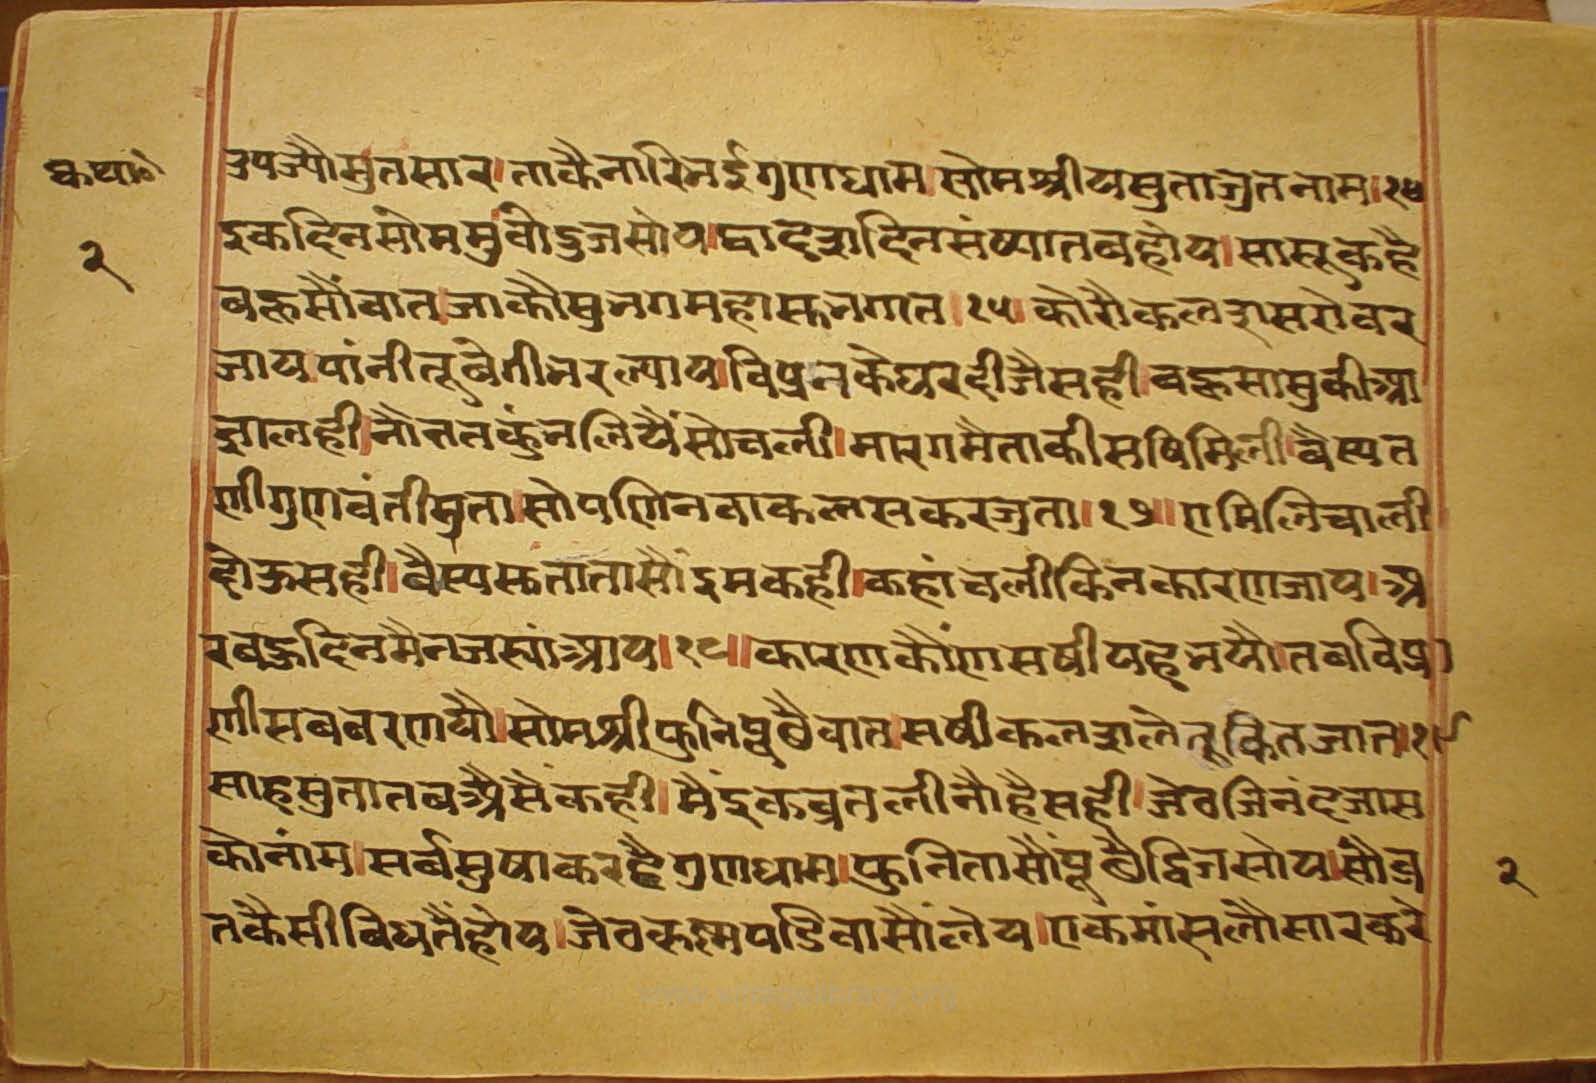 कथा०
२
उपज्यौ सुत सार। ताकै नारि नई गुणधाम। सोमश्री यसुता जुत नाम। १४
इक दिन सोम मुंवो दुज सोय। द्वादश दिन संष्या तब होय। सासू कहै
बहू सौं वात। जाकौ सुनग महास्तनगात। १५। कोरौ कलश सरोवर
जाय पांनी तू बेगी भर ल्याय। विप्रन के घर दीजै सही। बहू सासु की आ
ज्ञा लही। नौतन कुंभ लियैं सो चली। मारग मै ताकी सषि मिली। वैस्यत
णी गुणवंती सुता। सो पणि नवा कलस कर जुता। १७॥ ए मिलि चाली
दोऊ सही। वैस्यसुता तासौं इम कही। कहां चली किन कारण जाय। अ
र बहु दिन मै न जस्यां आय। १८॥ कारण कौंण सषी यह भयौ। तब विप्र
णी सब बरणयौ। सोमश्री फुनि पूछै वात। सषी कलश ले तू कित जात। १९
साहसुता तब अैसैं कही। मैं इक व्रत लीनौ है सही। जेठजिनंद जास
कौ नांम। सर्व सुषाकर है गुणधाम। फुनि तासौं पूछै द्विज सोय। सौ व्र
त कैसी विध तैं होय। जेठ कृस्म पडिवा सौं लेय। एक मांस लौ सार करे
२
www.vitragelibrary.org